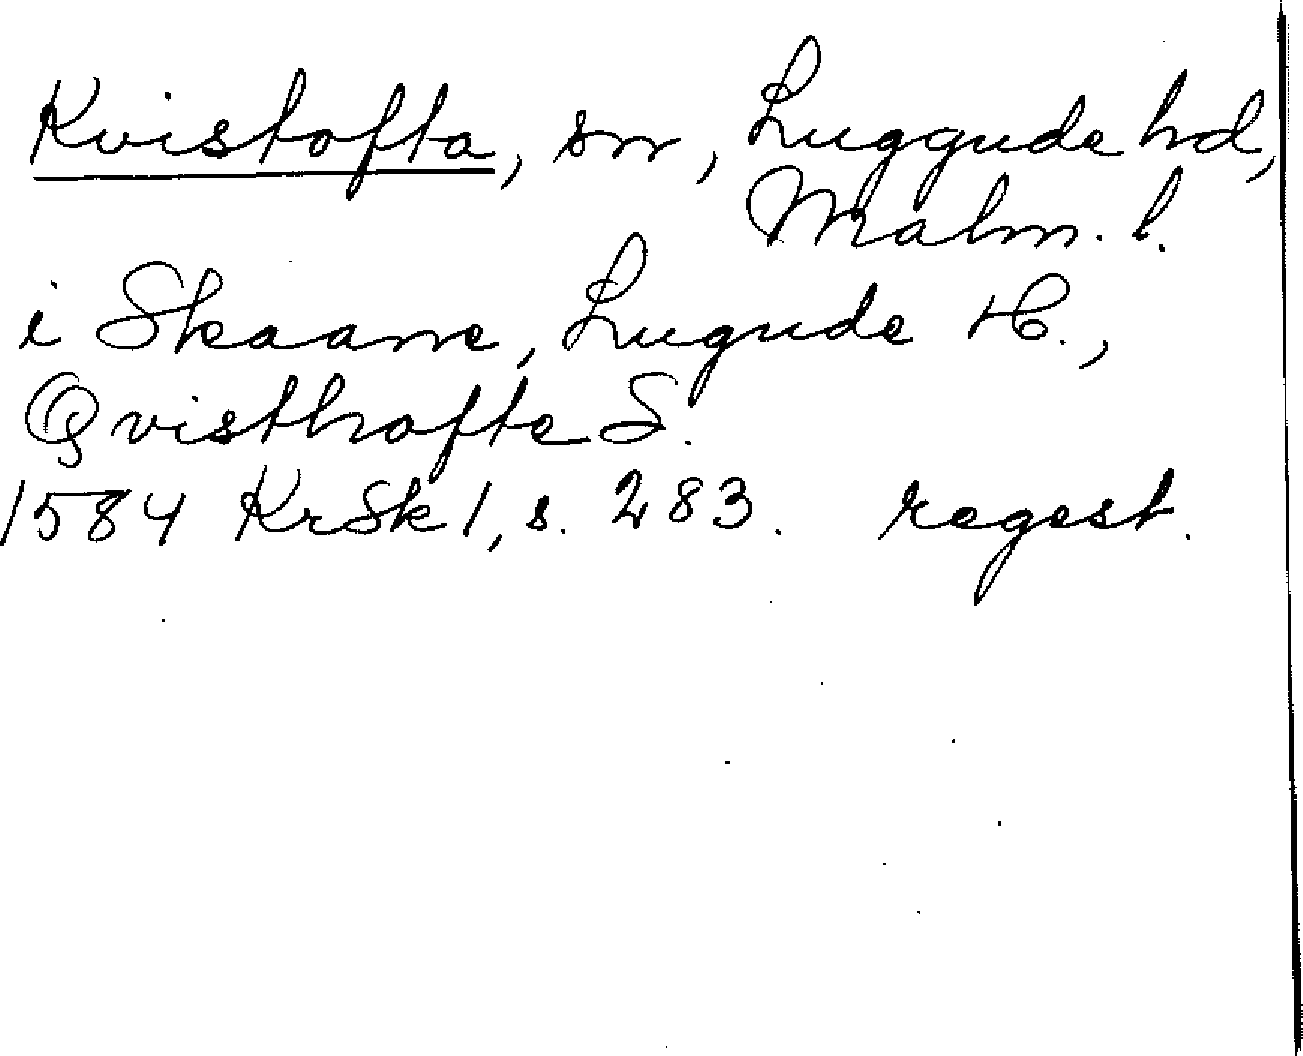 Kvistofta, sn, Luggude hd,
Malm. l.
i Skaane, Lugude H.,
Qvisthofte S.
1584 KrSk 1, s. 283. regest.